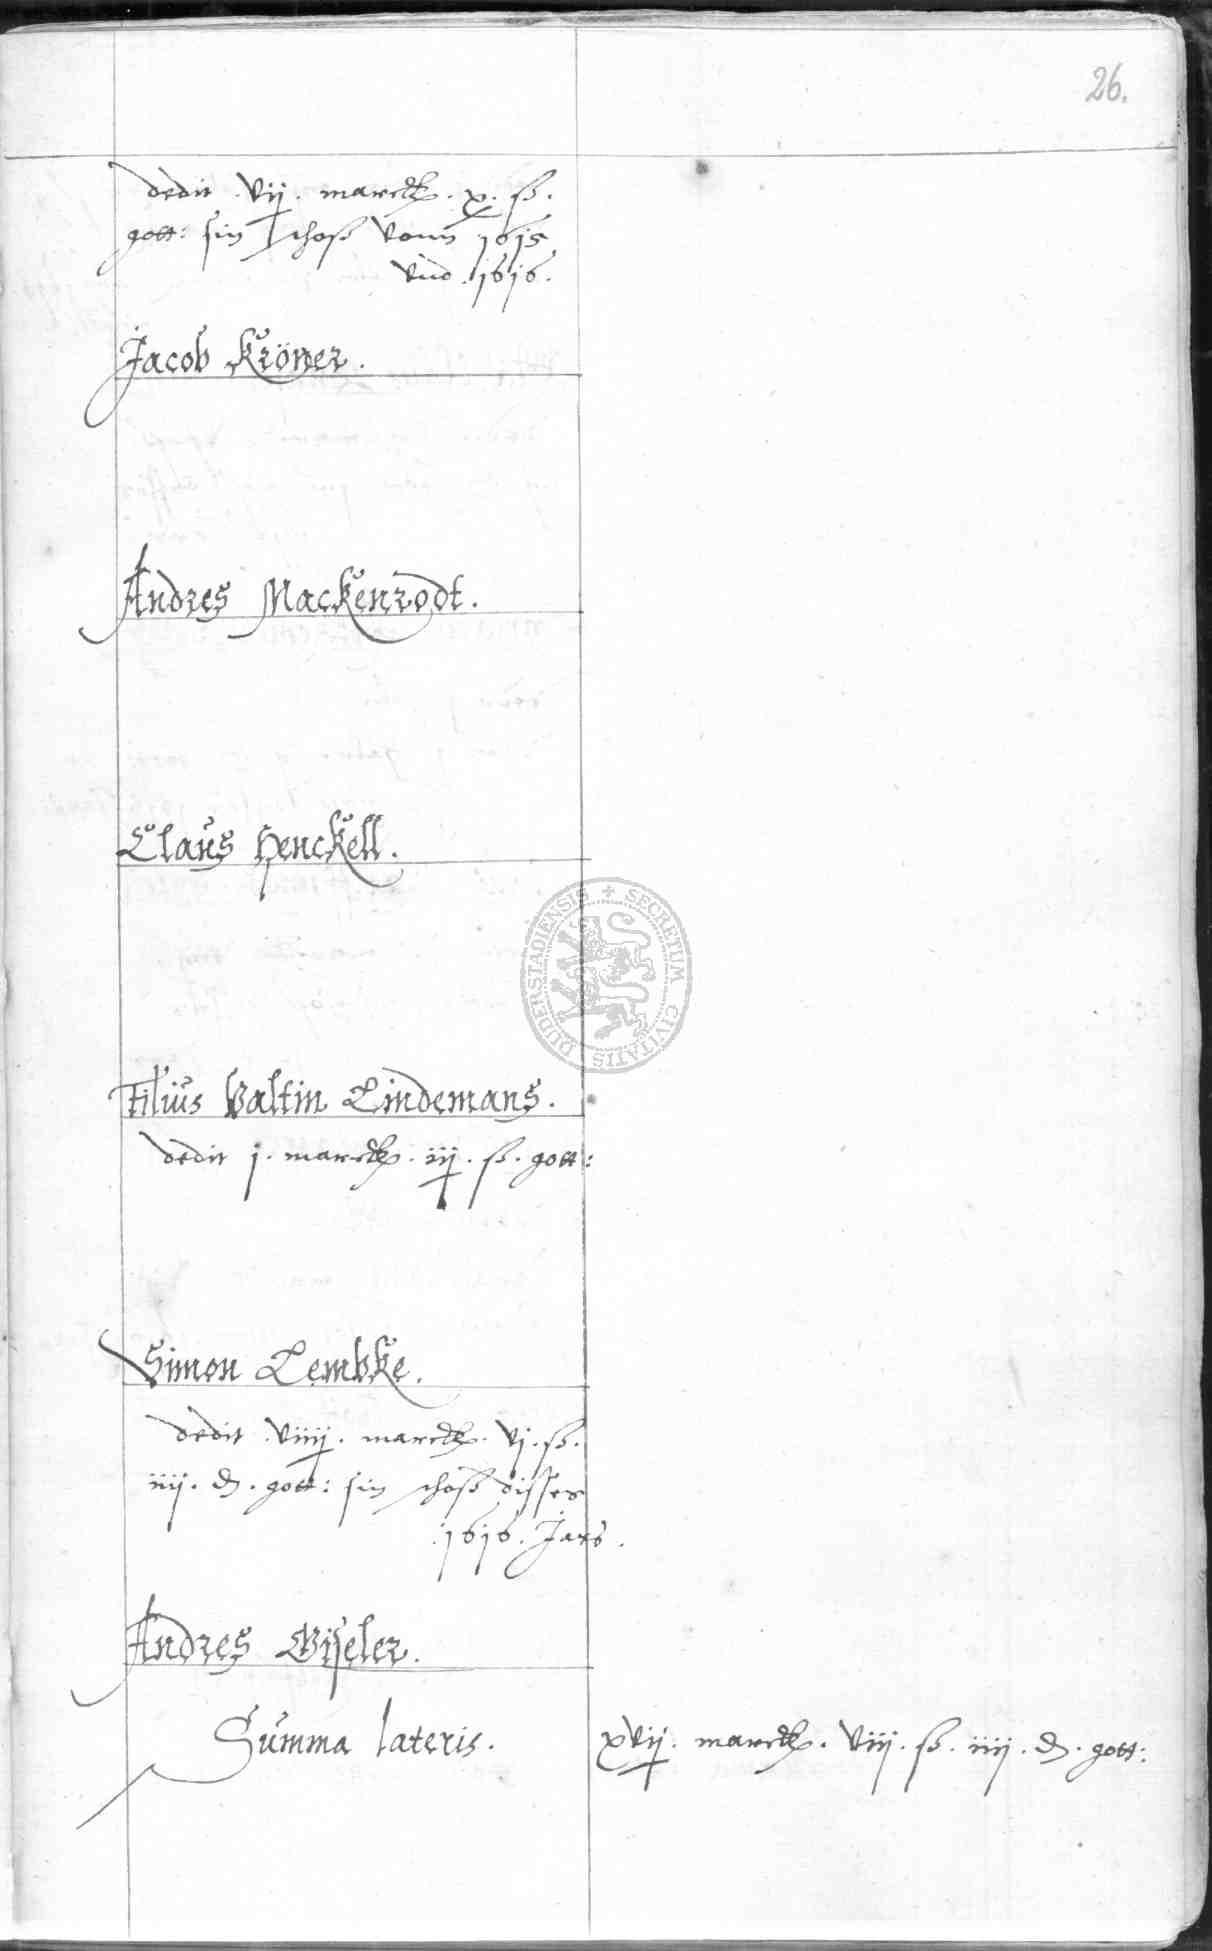 26.
dedit . vij . marck . x . ß .
gott: sin schoß vonn 1615
vnd . 1616 .
Jacob Kröner .
Andres Mackenrodt .
Claus Henckell .
Filius Valtin Lindemans .
dedit j . marck . iij . ß . gott :
Simon Lembke .
dedit . viiij . marck . vj . ß .
iiij . d . gott : sin schoß disses
. 1616 . Jars .
Andres Giseler .
Summa lateris . xvij . marck . viij . ß . iiij . d . gott :
SECRETUM CIVITATIS DUDERSTADIENSIS